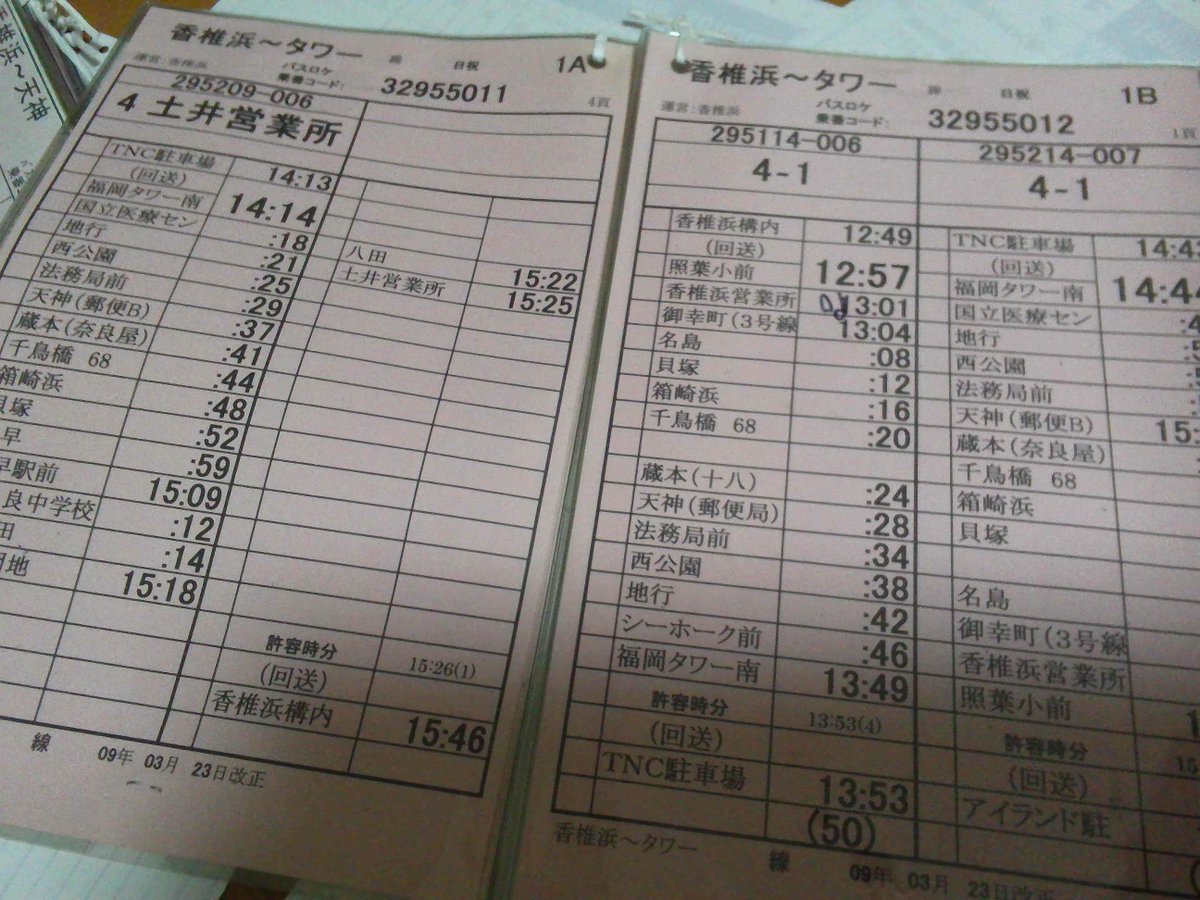 香椎浜~天神
香椎浜~タワー 線 日祝 1A
運営:香椎浜 バスロケ 乗番コード: 32955011 4頁
295209-006
4 土井営業所
TNC駐車場 14:13
(回送)
福岡タワー南 14:14
国立医療セン :18
地行 :21
西公園 :25
法務局前 :29
天神(郵便B) :37
蔵本(奈良屋) :41
千鳥橋 68 :44
箱崎浜 :48
貝塚 :52
早 :59
早駅前 15:09
良中学校 :12
田 :14
団地 15:18
八田 15:22
土井営業所 15:25
許容時分 15:26(1)
(回送)
香椎浜構内 15:46
線 09年 03月 23日改正
香椎浜~タワー 線 日祝 1B
運営:香椎浜 バスロケ 乗番コード: 32955012 1頁
295114-006
4-1
香椎浜構内 12:49
(回送)
照葉小前 12:57
香椎浜営業所 13:01
御幸町(3号線 13:04
名島 :08
貝塚 :12
箱崎浜 :16
千鳥橋 68 :20
蔵本(十八) :24
天神(郵便局) :28
法務局前 :34
西公園 :38
地行 :42
シーホーク前 :46
福岡タワー南 13:49
許容時分 13:53(4)
(回送)
TNC駐車場 13:53
(50)
295214-007
4-1
TNC駐車場 14:43
(回送)
福岡タワー南 14:44
国立医療セン
地行
西公園
法務局前
天神(郵便B) 15:
蔵本(奈良屋)
千鳥橋 68
箱崎浜
貝塚
名島
御幸町(3号線
香椎浜営業所
照葉小前
許容時分 15
(回送)
アイランド駐
香椎浜~タワー 線 09年 03月 23日改正